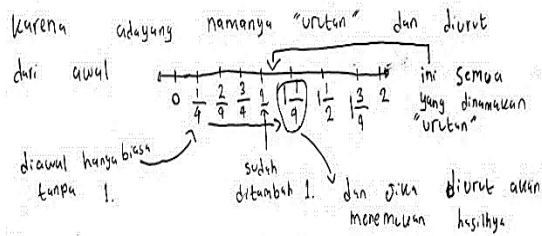 karena adayang namanya "urutan" dan diurut
dari awal
0 1/4 2/4 3/4 1 1 1/4 1 1/2 1 3/4 2
ini semua
yang dinamakan
"urutan"
diawal hanya biasa
tanpa 1.
sudah
ditambah 1.
dan jika diurut akan
menemukan hasilnya